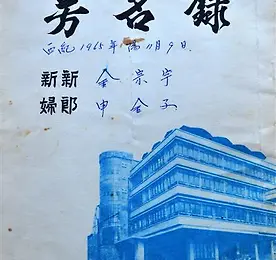 芳名錄
西紀 1965年 11月 9日.
新郎 金宗宇
新婦 申金子